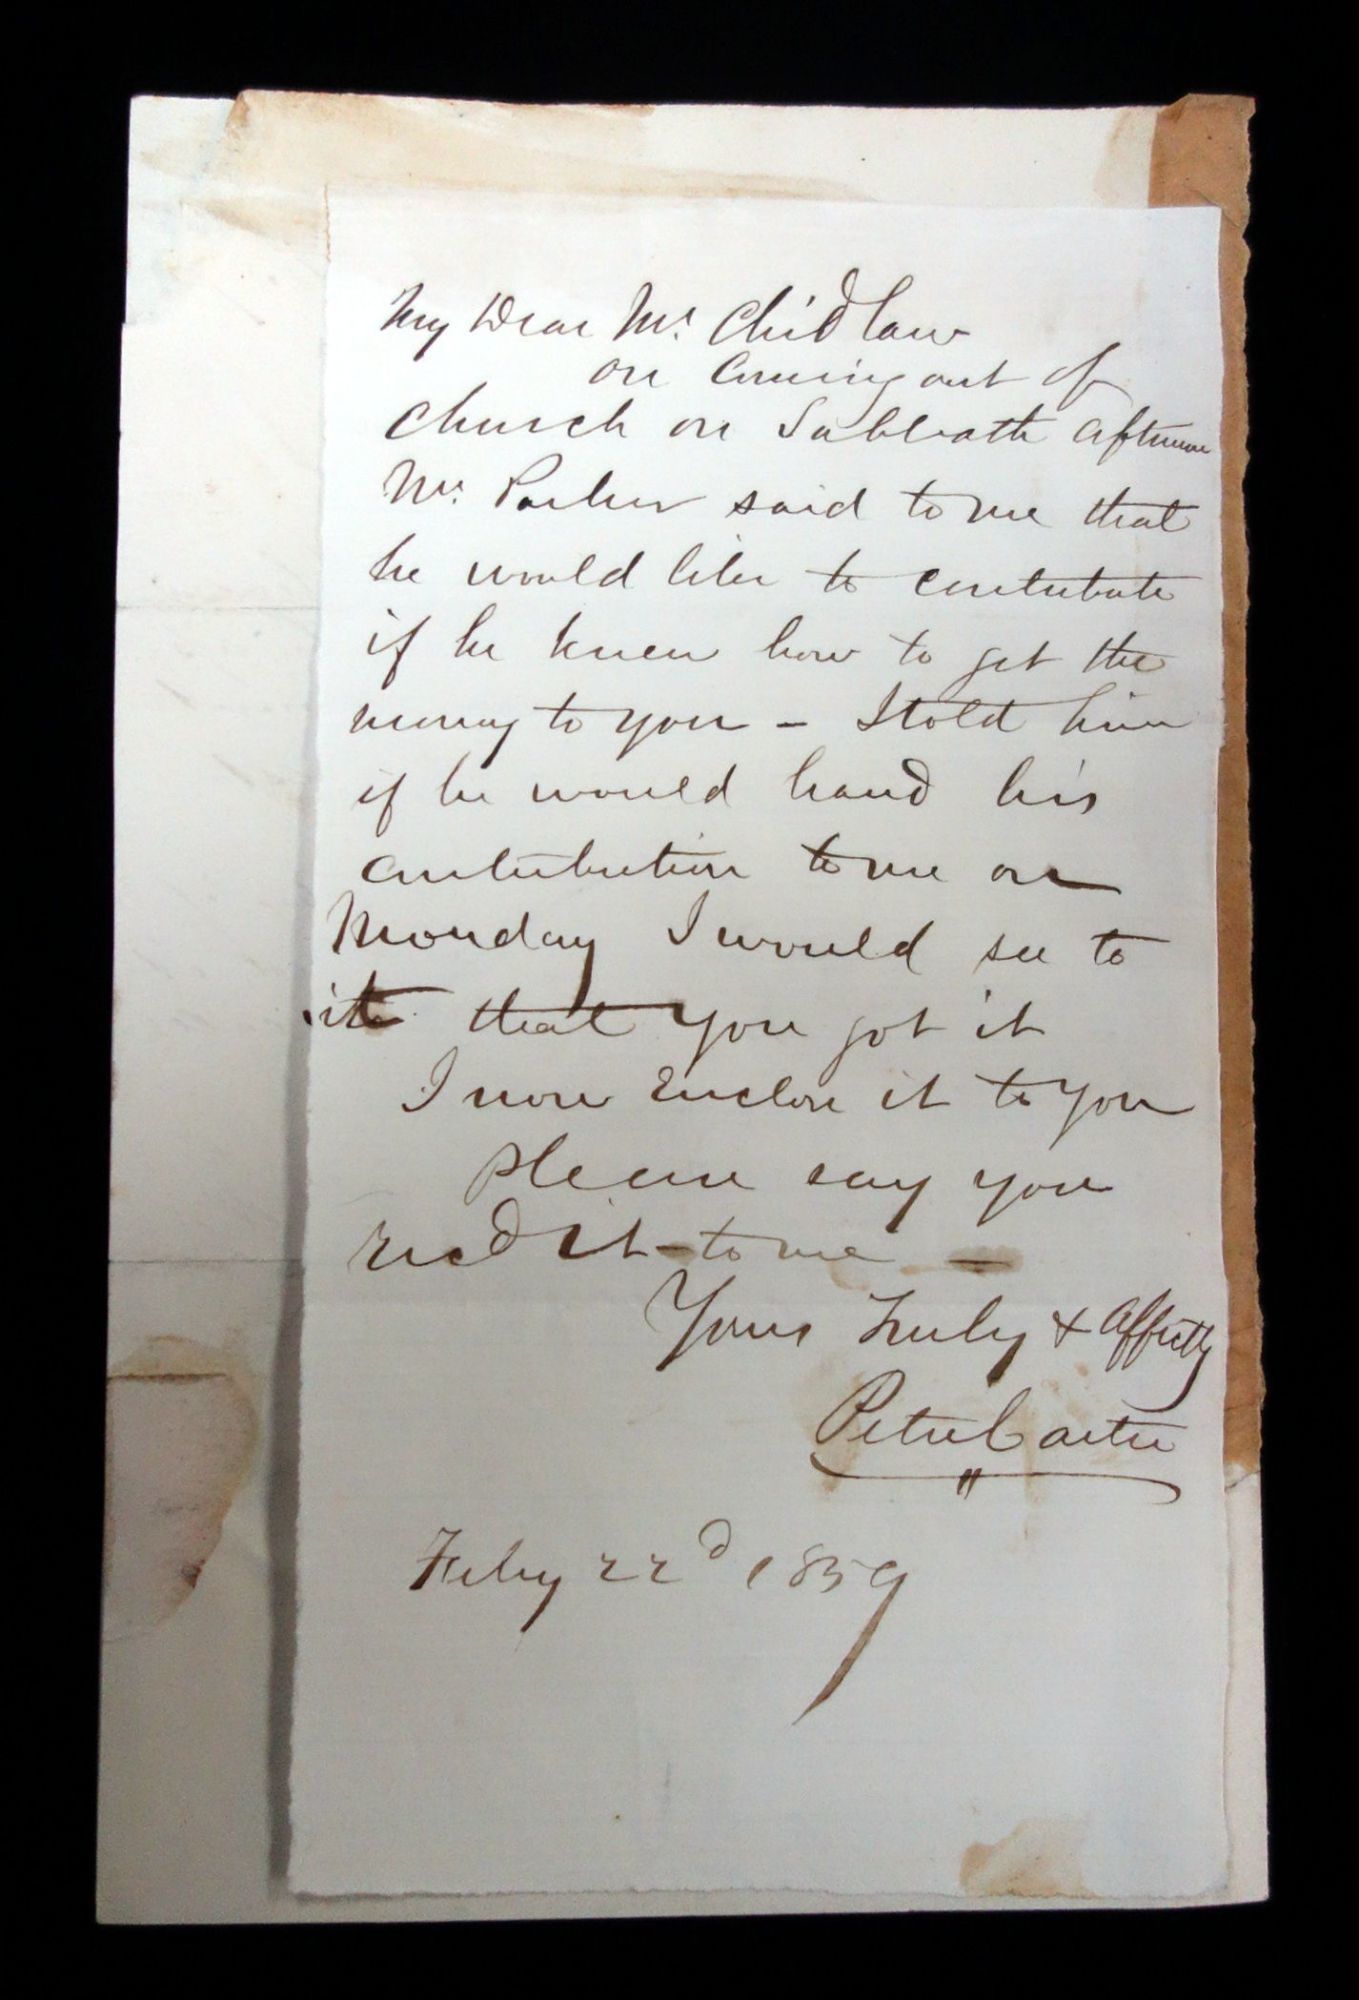 My Dear Mr. Chidlaw
on coming out of
church on Sabbath afternoon
Mr. Parker said to me that
he would like to contribute
if he knew how to get the
money to you - I told him
if he would hand his
contribution to me on
Monday I would see to
it that you got it
I now Enclose it to you
please say you
recd it to me -
Yours Truly & Affectly
Peter Carter
Feby 22d 1859